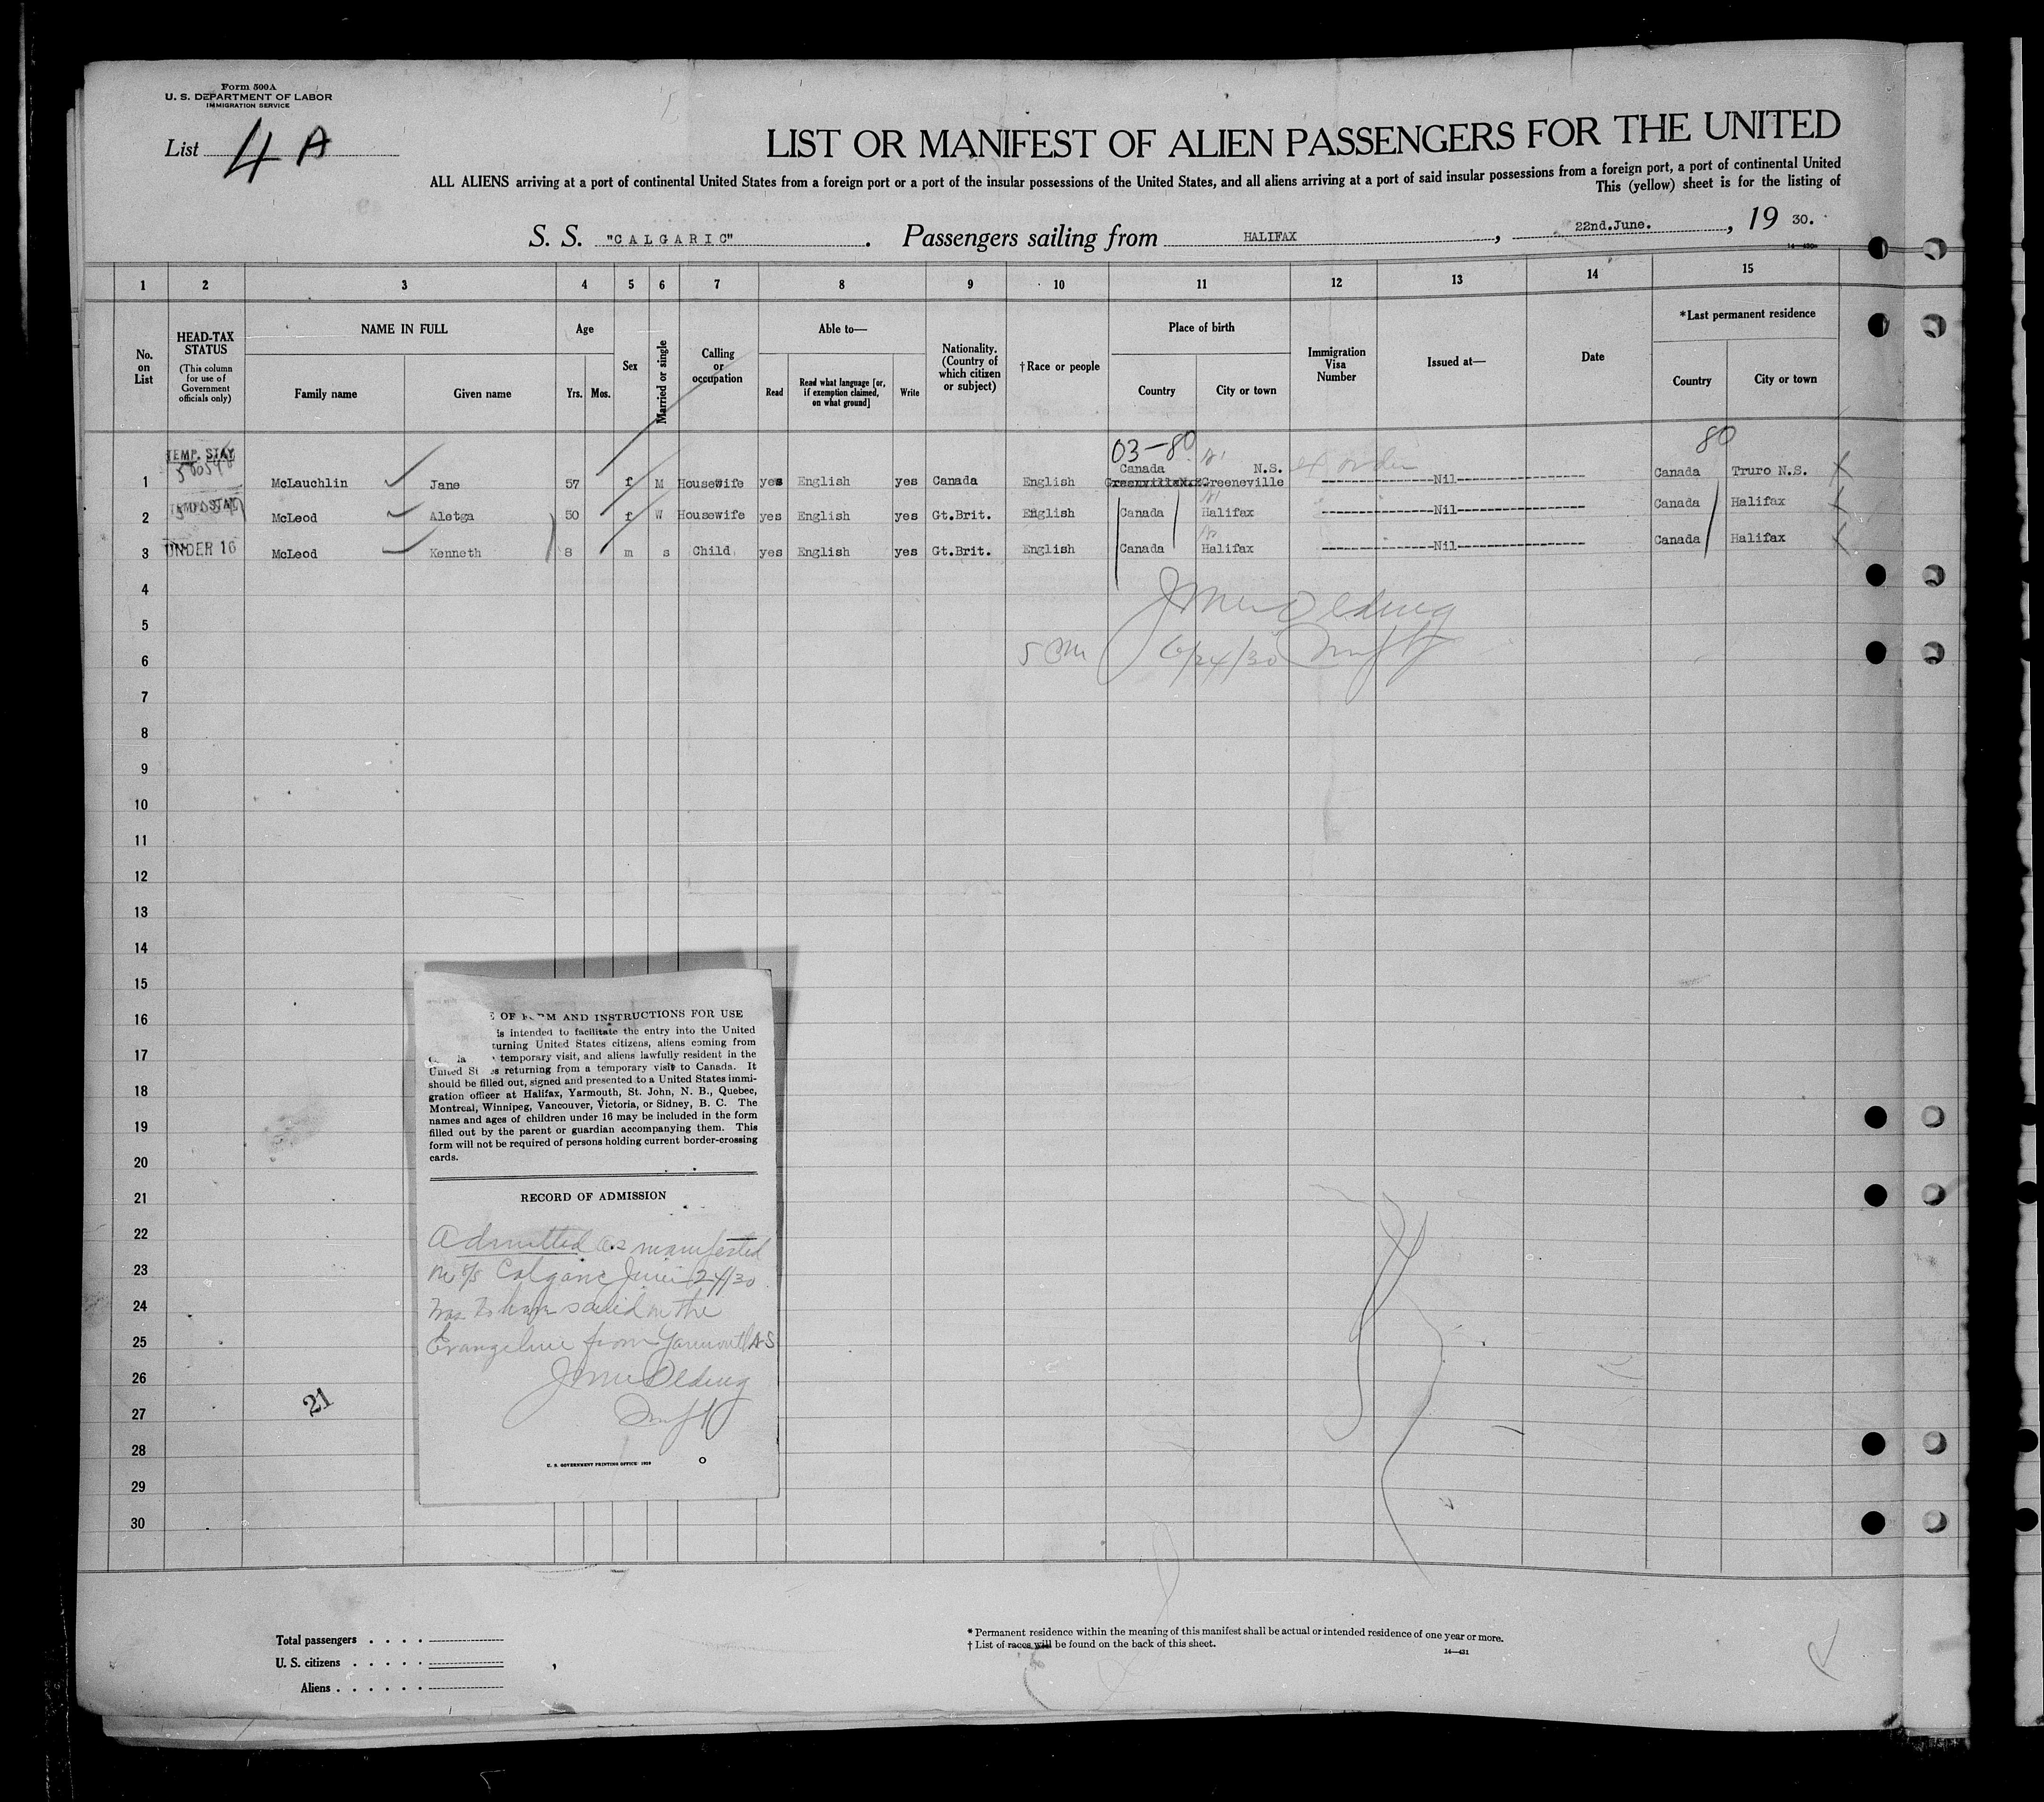 Form 500A
U. S. DEPARTMENT OF LABOR
IMMIGRATION SERVICE
List 4 A
LIST OR MANIFEST OF ALIEN PASSENGERS FOR THE UNITED
ALL ALIENS arriving at a port of continental United States from a foreign port or a port of the insular possessions of the United States, and all aliens arriving at a port of said insular possessions from a foreign port, a port of continental United
This (yellow) sheet is for the listing of
S. S. "CALGARIC". Passengers sailing from HALIFAX, 22nd.June., 19 30.
1 2 3 4 5 6 7 8 9 10 11 12 13 14 15
No. on List
HEAD-TAX STATUS (This column for use of Government officials only)
NAME IN FULL
Family name Given name
Age
Yrs. Mos.
Sex
Married or single
Calling or occupation
Able to—
Read Read what language [or, if exemption claimed, on what ground] Write
Nationality. (Country of which citizen or subject)
†Race or people
Place of birth
Country City or town
Immigration Visa Number
Issued at—
Date
*Last permanent residence
Country City or town
03-80 80
TEMP. STAY
1 McLauchlin Jane 57 f M Housewife yes English yes Canada English Canada N.S. Greeneville Nil Canada Truro N.S.
TEMP. STAY
2 McLeod Aletga 50 f W Housewife yes English yes Gt.Brit. English Canada Halifax Nil Canada Halifax
UNDER 16
3 McLeod Kenneth 8 m s Child yes English yes Gt.Brit. English Canada Halifax Nil Canada Halifax
4
5
6 6/24/30
7
8
9
10
11
12
13
14
15
16
17
18
19
20
21
22
23
24
25
26
27
28
29
30
OF FORM AND INSTRUCTIONS FOR USE
is intended to facilitate the entry into the United
turning United States citizens, aliens coming from
temporary visit, and aliens lawfully resident in the
United States returning from a temporary visit to Canada. It
should be filled out, signed and presented to a United States immi-
gration officer at Halifax, Yarmouth, St. John, N. B., Quebec,
Montreal, Winnipeg, Vancouver, Victoria, or Sidney, B. C. The
names and ages of children under 16 may be included in the form
filled out by the parent or guardian accompanying them. This
form will not be required of persons holding current border-crossing
cards.
RECORD OF ADMISSION
Admitted as manifested
S/S Calgaric June 24/30
was to have sailed on the
Evangeline from Yarmouth NS
U. S. GOVERNMENT PRINTING OFFICE
21
Total passengers
U. S. citizens
Aliens
* Permanent residence within the meaning of this manifest shall be actual or intended residence of one year or more.
† List of races will be found on the back of this sheet.
14—431